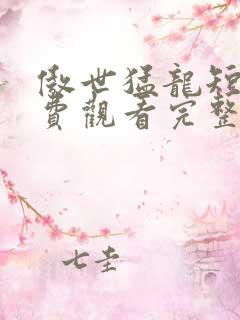 傲世猛龍短
費觀看完整
七圭